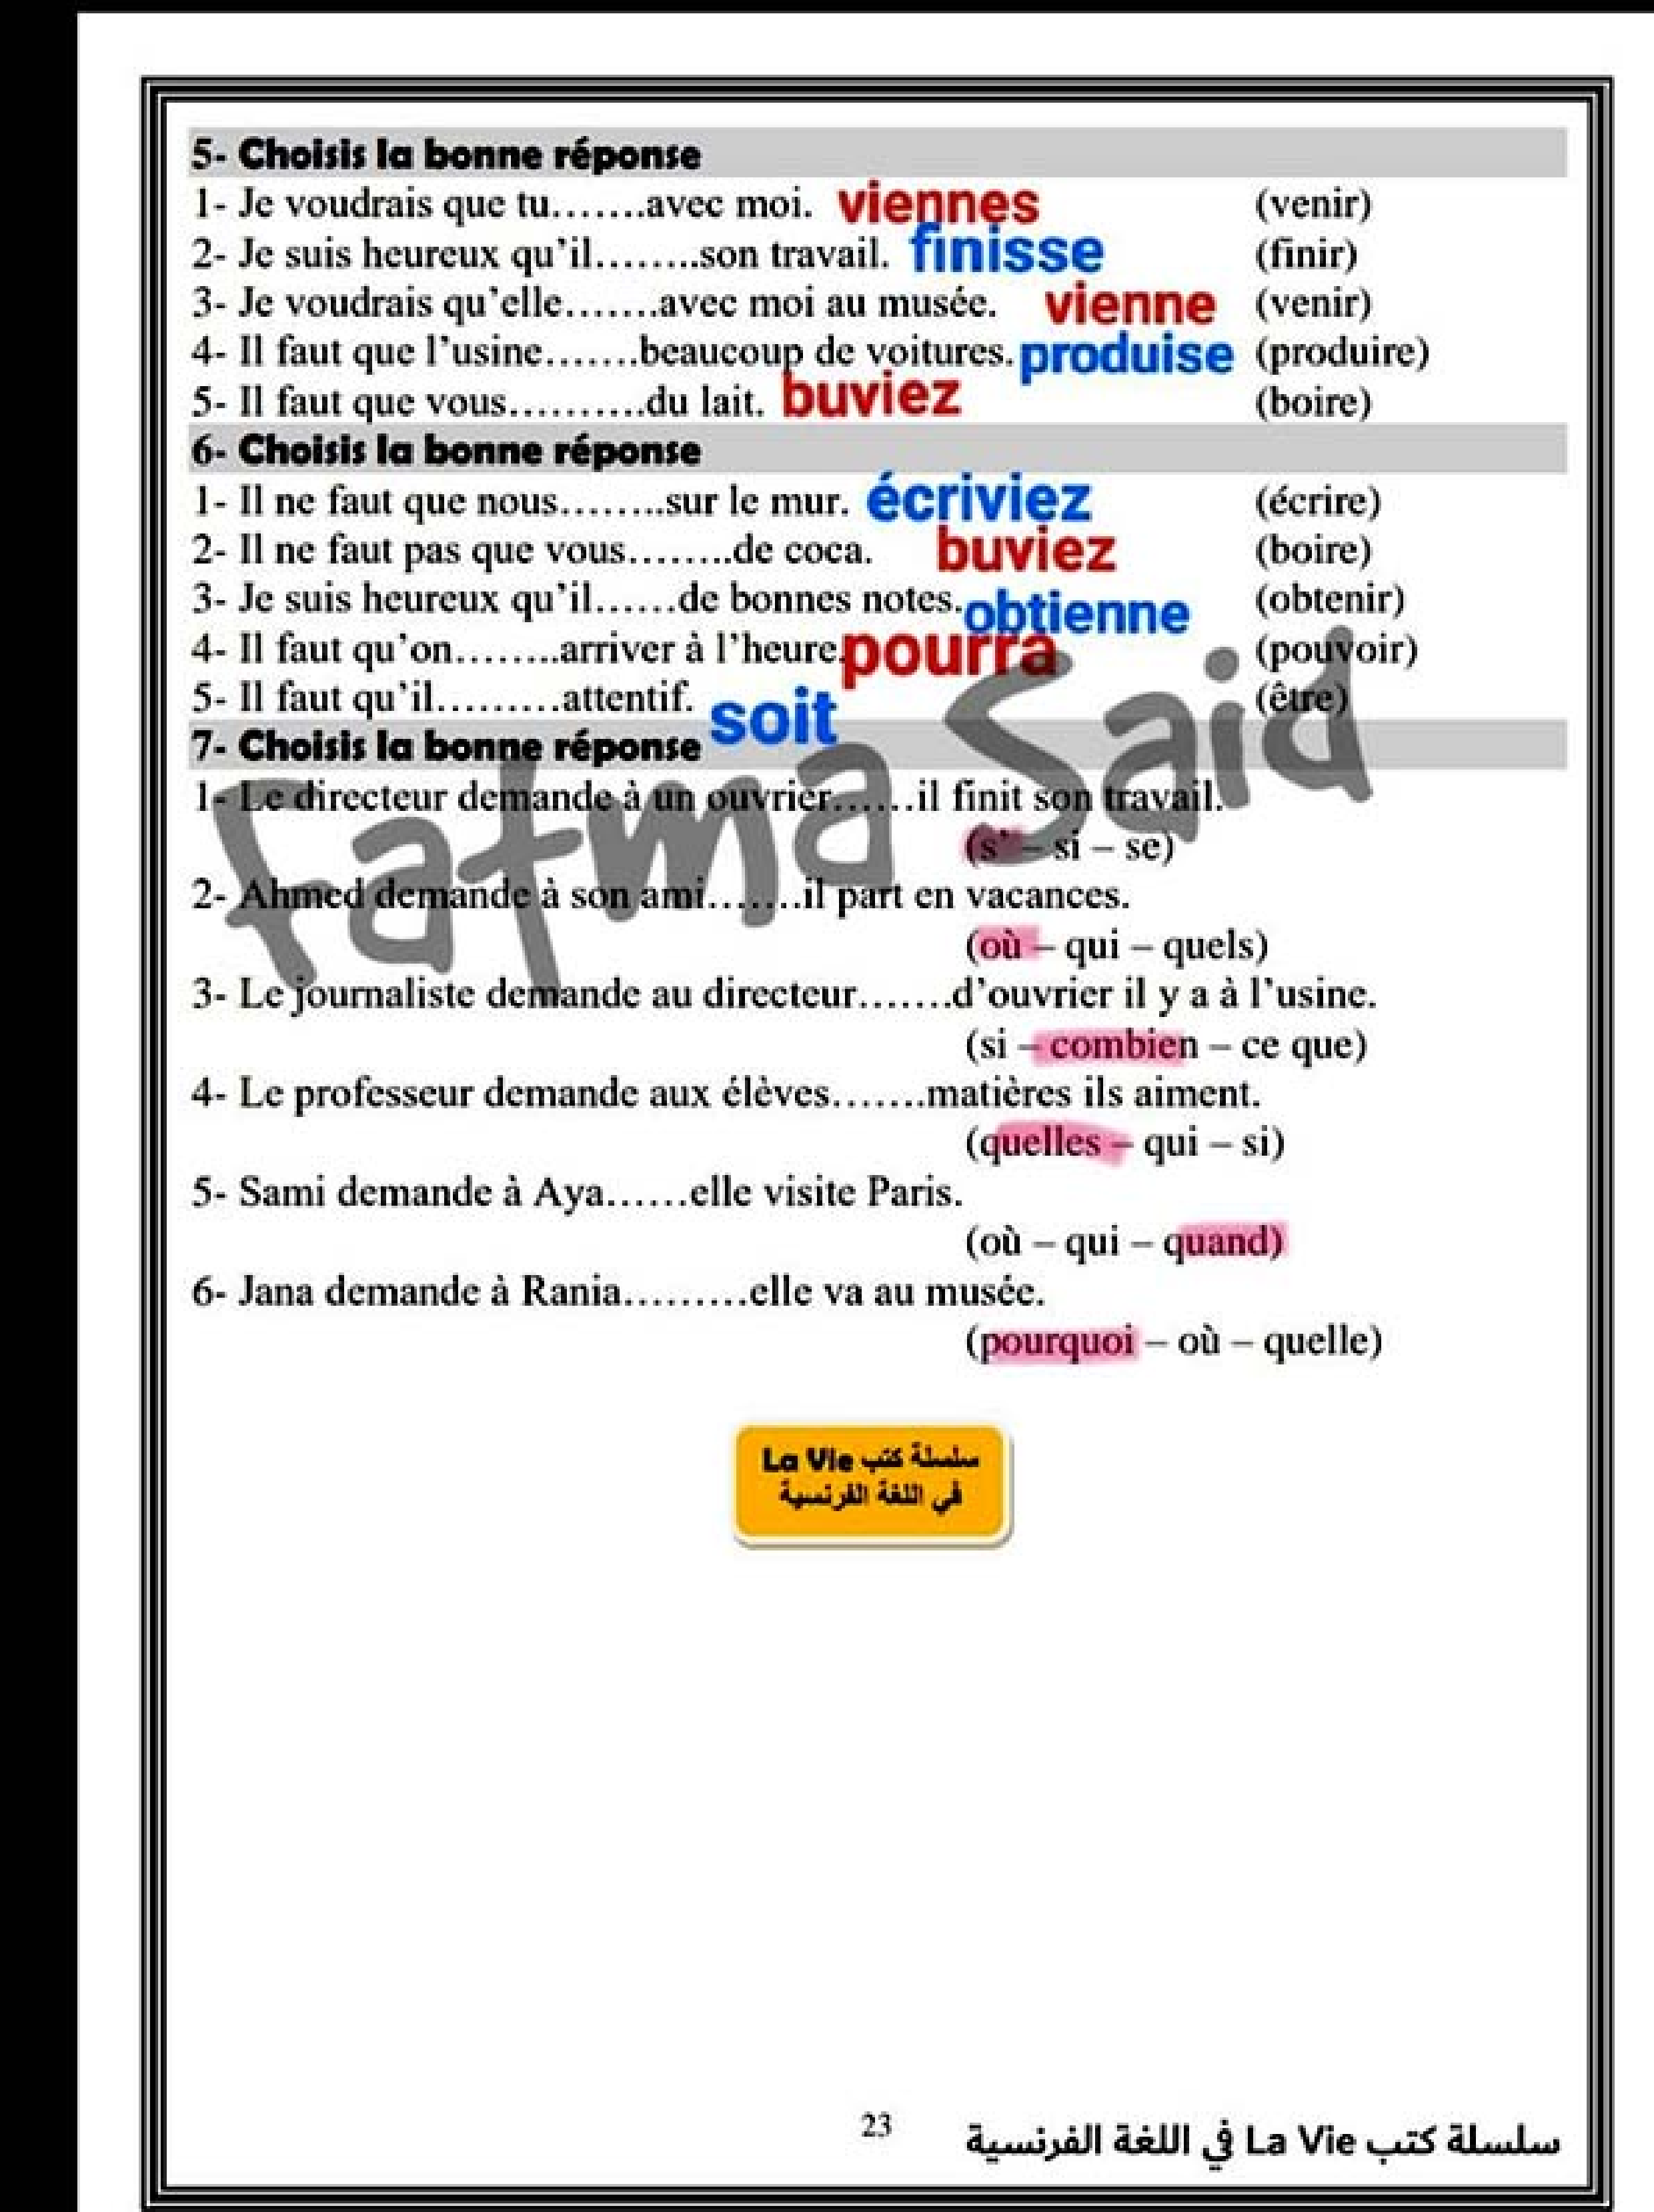 5- Choisis la bonne réponse
1- Je voudrais que tu…….avec moi. viennes (venir)
2- Je suis heureux qu’il……..son travail. finisse (finir)
3- Je voudrais qu’elle…….avec moi au musée. vienne (venir)
4- Il faut que l’usine…….beaucoup de voitures. produise (produire)
5- Il faut que vous……….du lait. buviez (boire)
6- Choisis la bonne réponse
1- Il ne faut que nous……..sur le mur. écriviez (écrire)
2- Il ne faut pas que vous……..de coca. buviez (boire)
3- Je suis heureux qu’il……de bonnes notes. obtienne (obtenir)
4- Il faut qu’on……..arriver à l’heure. pourra (pouvoir)
5- Il faut qu’il………attentif. soit (être)
7- Choisis la bonne réponse
Fatma Said
1- Le directeur demande à un ouvrier……il finit son travail.
(s’ – si – se)
2- Ahmed demande à son ami…….il part en vacances.
(où – qui – quels)
3- Le journaliste demande au directeur…….d’ouvrier il y a à l’usine.
(si – combien – ce que)
4- Le professeur demande aux élèves…….matières ils aiment.
(quelles – qui – si)
5- Sami demande à Aya……elle visite Paris.
(où – qui – quand)
6- Jana demande à Rania………elle va au musée.
(pourquoi – où – quelle)
سلسلة كتب La Vie
في اللغة الفرنسية
23
سلسلة كتب La Vie في اللغة الفرنسية